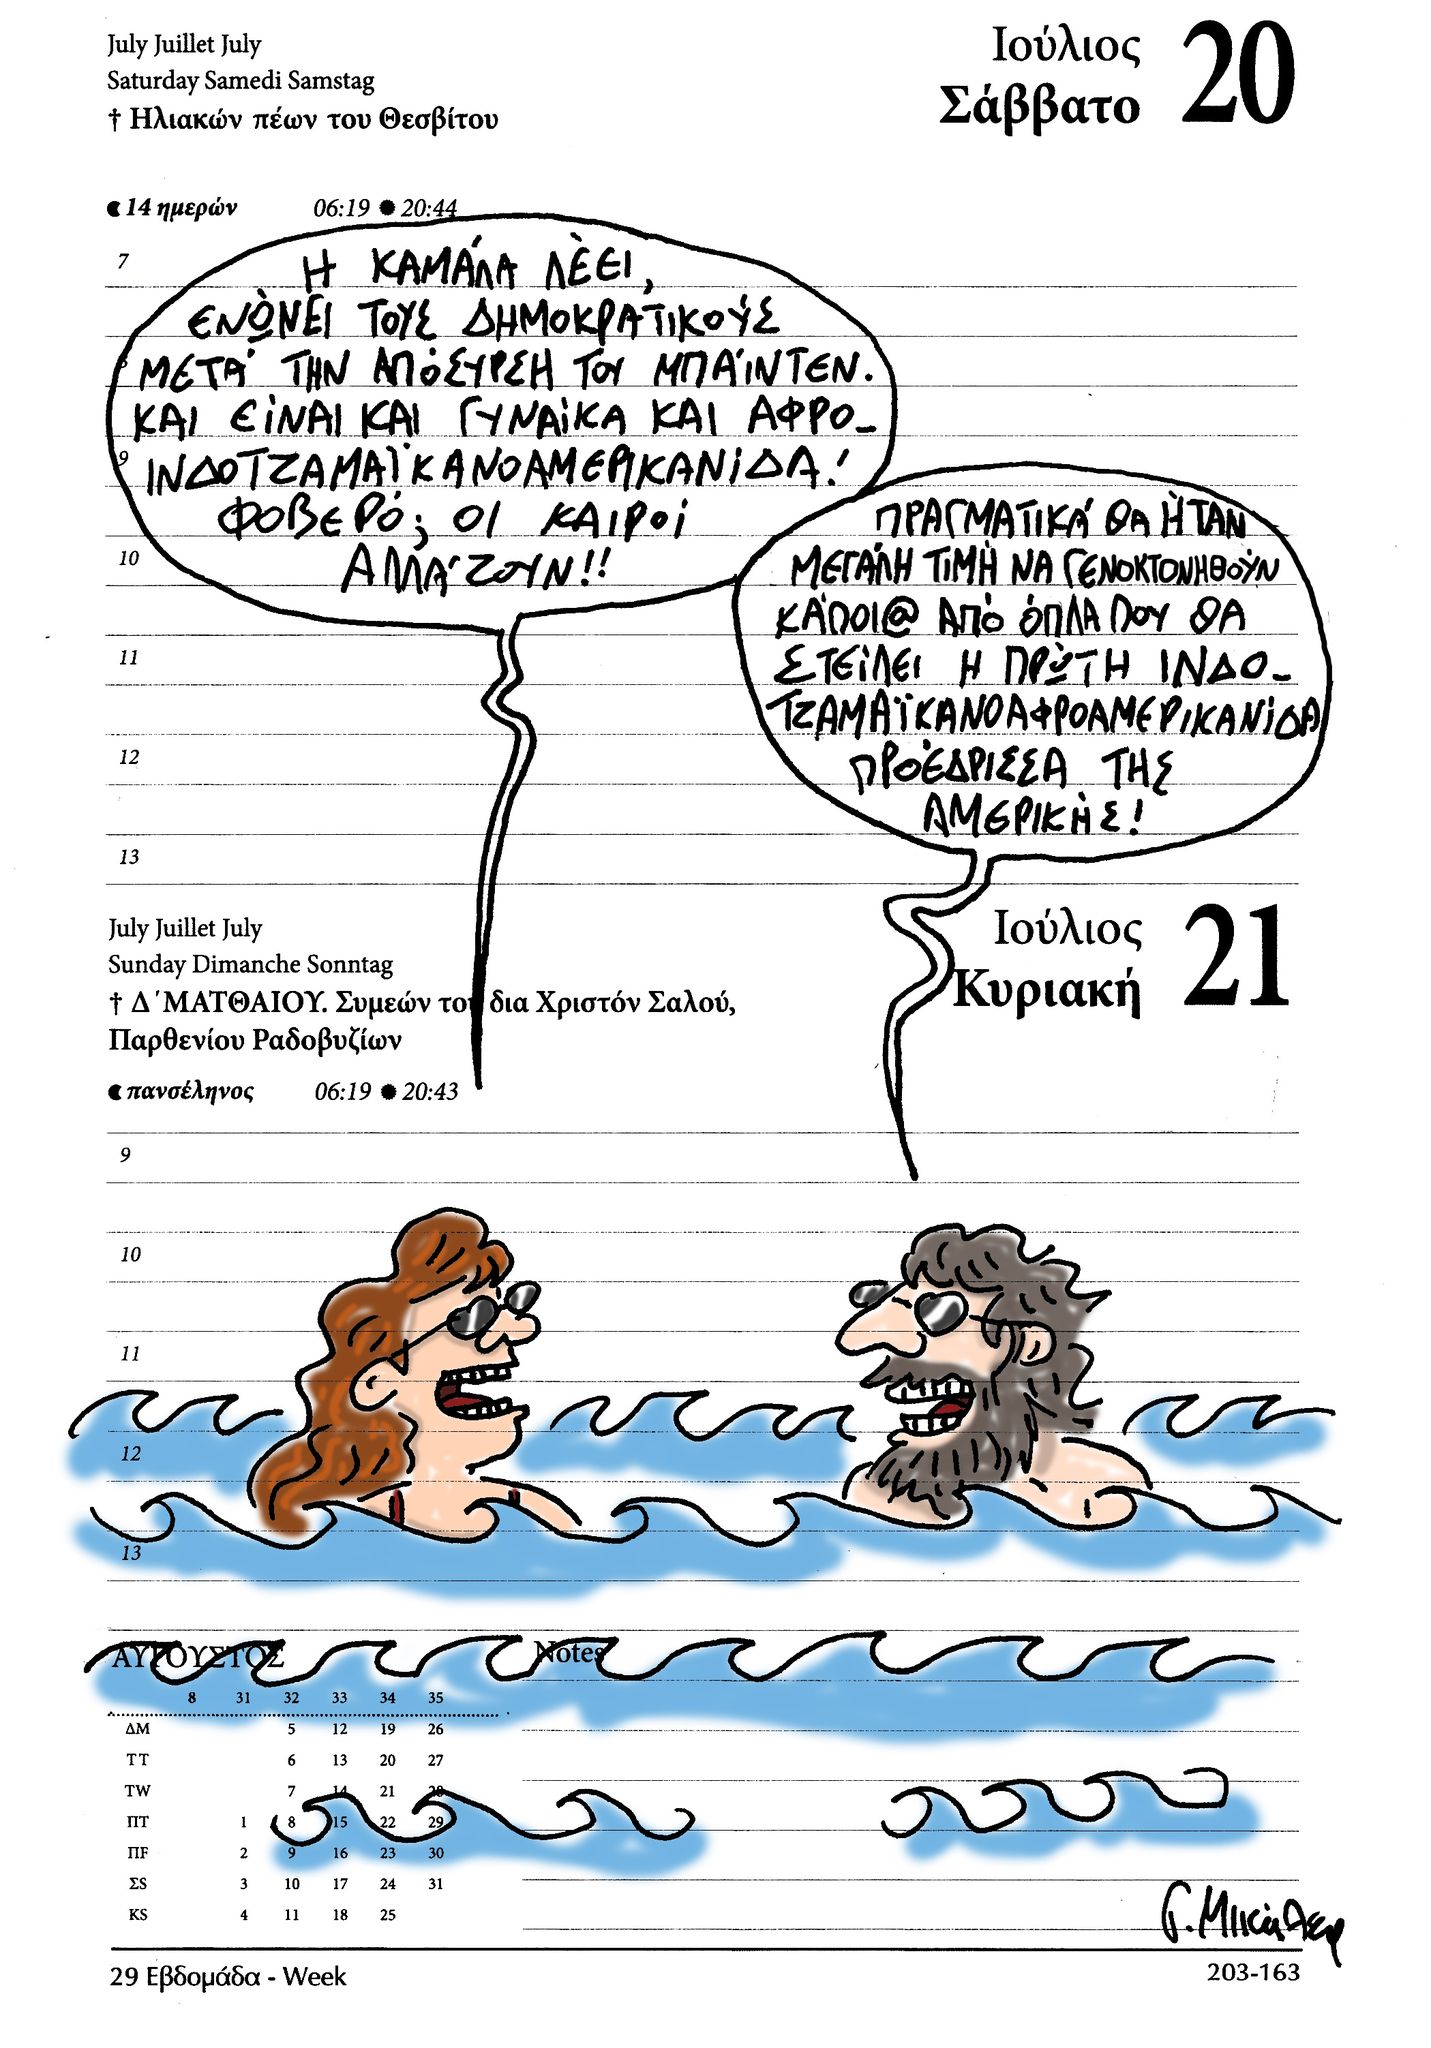 July Juillet July
Saturday Samedi Samstag
† Ηλιακών πέων του Θεσβίτου
Ιούλιος
Σάββατο
20
14 ημερών 06:19 20:44
7
Η ΚΑΜΑΛΑ ΛΕΕΙ,
ΕΝΩΝΕΙ ΤΟΥΣ ΔΗΜΟΚΡΑΤΙΚΟΥΣ
ΜΕΤΑ ΤΗΝ ΑΠΟΣΥΡΣΗ ΤΟΥ ΜΠΑΪΝΤΕΝ.
ΚΑΙ ΕΙΝΑΙ ΚΑΙ ΓΥΝΑΙΚΑ ΚΑΙ ΑΦΡΟ-
9
ΙΝΔΟΤΖΑΜΑΪΚΑΝΟΑΜΕΡΙΚΑΝΙΔΑ!
ΦΟΒΕΡΟ; ΟΙ ΚΑΙΡΟΙ
ΑΛΛΑΖΟΥΝ!!
ΠΡΑΓΜΑΤΙΚΑ ΘΑ ΗΤΑΝ
ΜΕΓΑΛΗ ΤΙΜΗ ΝΑ ΓΕΝΟΚΤΟΝΗΘΟΥΝ
ΚΑΠΟΙ@ ΑΠΟ ΟΠΛΑ ΠΟΥ ΘΑ
ΣΤΕΙΛΕΙ Η ΠΡΩΤΗ ΙΝΔΟ-
ΤΖΑΜΑΪΚΑΝΟΑΦΡΟΑΜΕΡΙΚΑΝΙΔΑ
ΠΡΟΕΔΡΙΣΣΑ ΤΗΣ
ΑΜΕΡΙΚΗΣ!
10
11
12
13
July Juillet July
Sunday Dimanche Sonntag
† Δ΄ΜΑΤΘΑΙΟΥ. Συμεών του δια Χριστόν Σαλού,
Παρθενίου Ραδοβυζίων
Ιούλιος
Κυριακή
21
πανσέληνος 06:19 20:43
9
10
11
12
13
ΑΥΓΟΥΣΤΟΣ
Notes
8 31 32 33 34 35
ΔΜ 5 12 19 26
ΤΤ 6 13 20 27
TW 7 14 21 28
ΠΤ 1 8 15 22 29
ΠF 2 9 16 23 30
ΣS 3 10 17 24 31
KS 4 11 18 25
Γ. Μικάλεφ
29 Εβδομάδα - Week
203-163